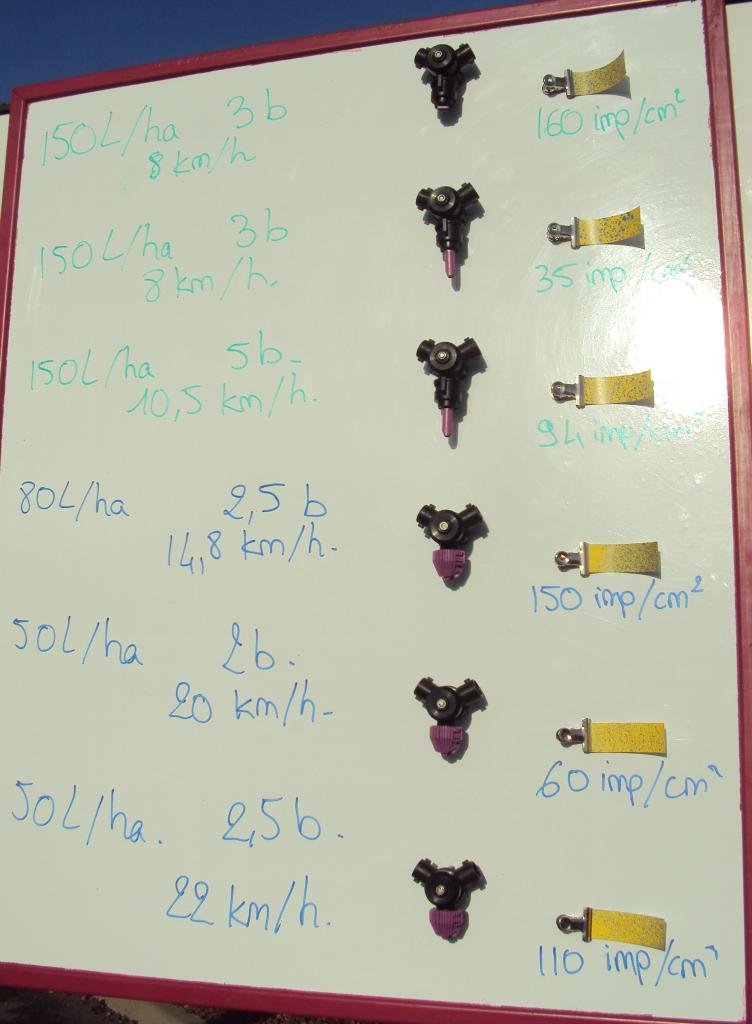 150L/ha 3b 160 imp/cm²
8 km/h
150L/ha 3b
8 km/h. 35 imp/cm²
150L/ha 5b-
10,5 km/h. 94 imp/cm²
80L/ha 2,5 b
14,8 km/h. 150 imp/cm²
50L/ha 2b.
20 km/h- 60 imp/cm²
50L/ha. 2,5b.
22 km/h. 110 imp/cm²